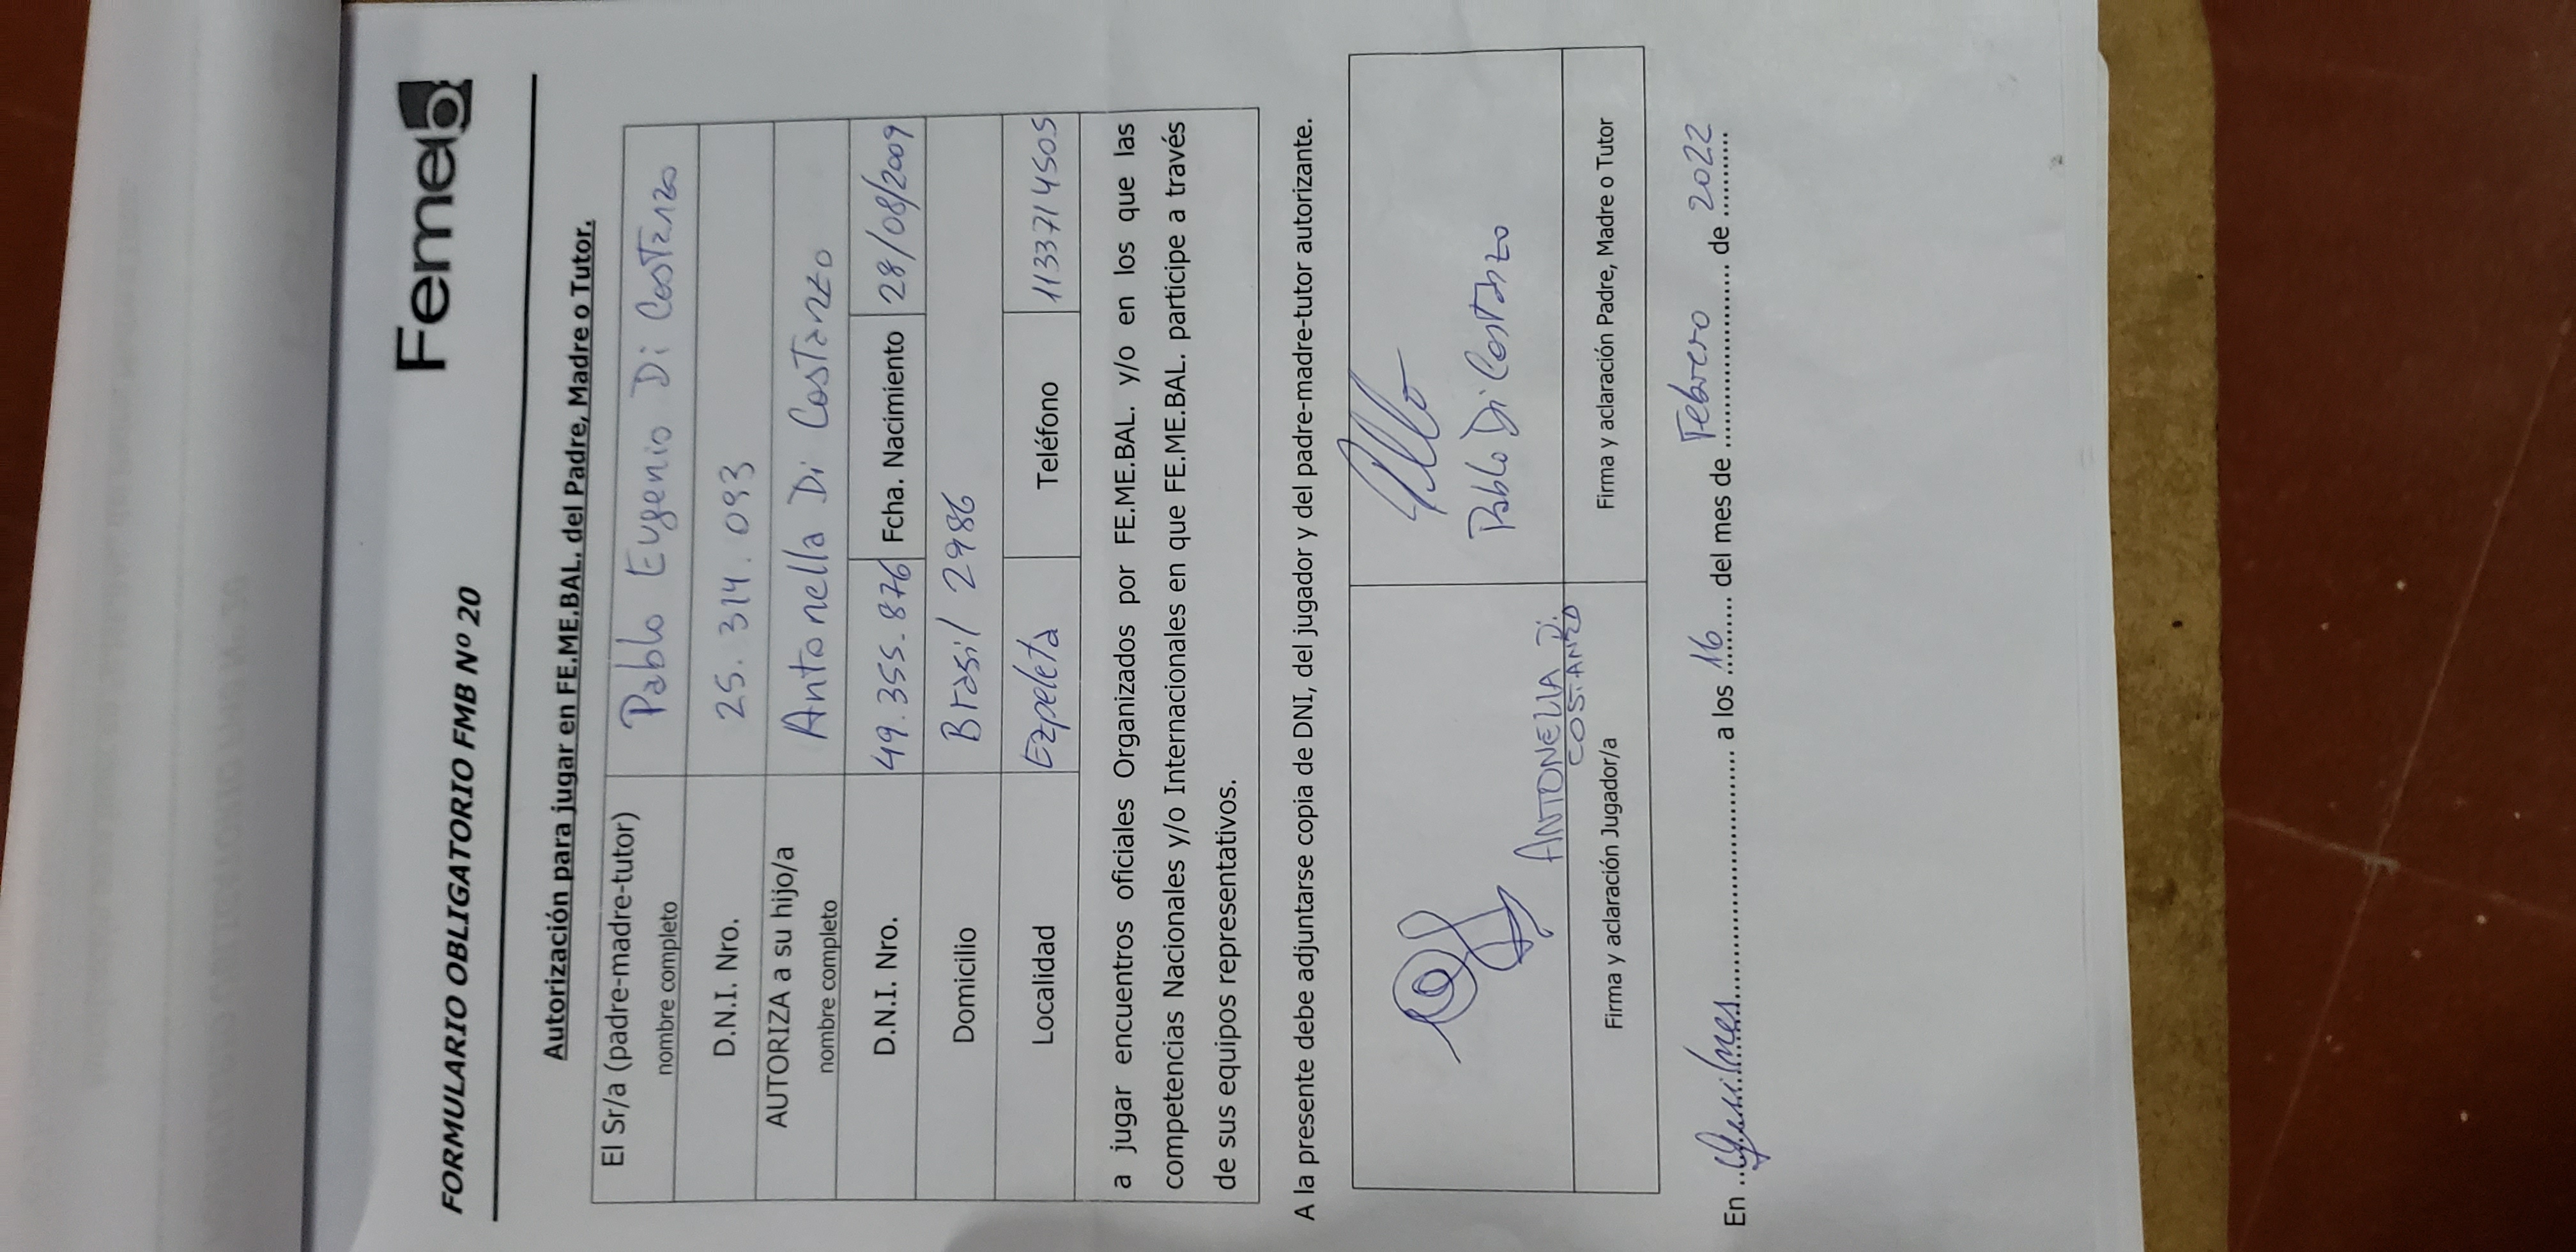 Femebal
FORMULARIO OBLIGATORIO FMB Nº 20
Autorización para jugar en FE.ME.BAL. del Padre, Madre o Tutor.
El Sr/a (padre-madre-tutor) nombre completo Pablo Eugenio Di Costanzo
D.N.I. Nro. 25.314.093
AUTORIZA a su hijo/a nombre completo Antonella Di Costanzo
D.N.I. Nro. 49.355.876 Fcha. Nacimiento 28/08/2009
Domicilio Brasil 2986
Localidad Ezpeleta Teléfono 1133714505
a jugar encuentros oficiales Organizados por FE.ME.BAL. y/o en los que las
competencias Nacionales y/o Internacionales en que FE.ME.BAL. participe a través
de sus equipos representativos.
A la presente debe adjuntarse copia de DNI, del jugador y del padre-madre-tutor autorizante.
ANTONELLA DI COSTANZO
Pablo Di Costanzo
Firma y aclaración Jugador/a Firma y aclaración Padre, Madre o Tutor
En Quilmes a los 16 del mes de Febrero de 2022